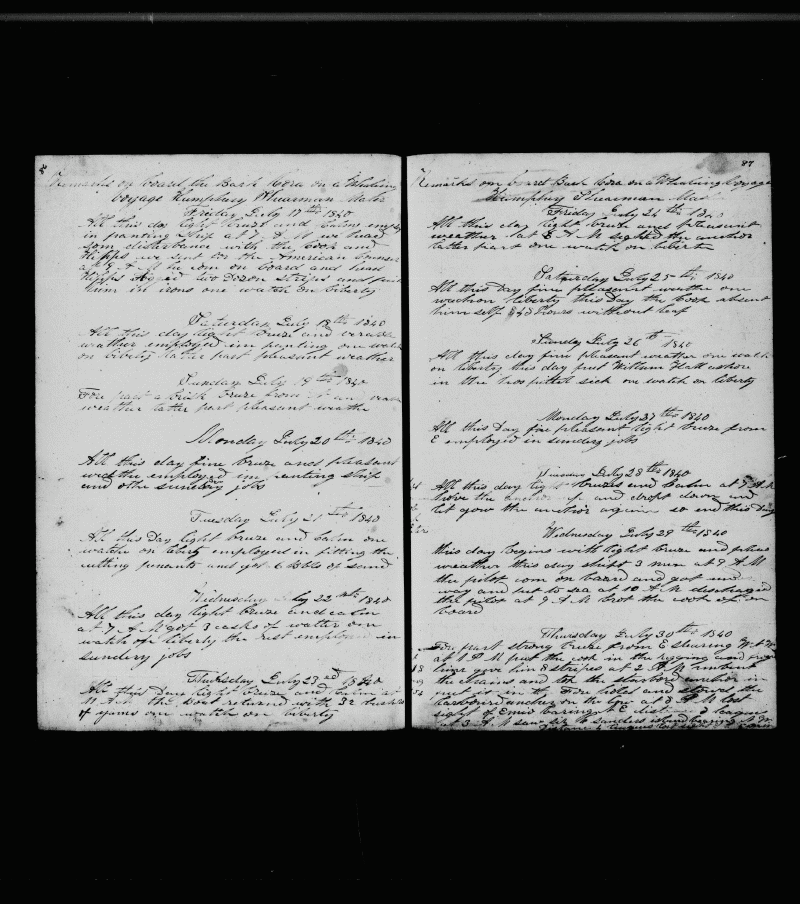 Remarks on board the Bark Cora on a Whaling
voyage Humphrey Shearman Mate
Friday July 17th 1840
All this day light bruze and calm employ
in panting Ship at 7 A M we head
som disturbance with the Cook and
we sent for the American
he com on board and
two Dozon stripes and put
him in irons one watch on liberty
Saturday July 18th 1840
All this day light bruze and
weather employed in panting one watch
on liberty latter part pleasant weather
Sunday July 19th 1840
Fore part a brisk bruze from
weather latter part pleasant weathe
Monday July 20th 1840
All this day fine bruze and pleasant
weathe employed in panting ship
and othe sundery jobs
Tuesday July 21st 1840
All this Day light bruze and calm one
watch on liberty employed in fitting the
cutting penants and got 6 bbls of sand
Wednesday July 22 1840
All this day light bruze and calm
at 7 A M got 3 casks of watter one
watch on liberty the rest employed in
sundery jobs
Thursday July 23rd 1840
All this Day light bruze and calm at
A M the boat returned with 32
of yams one watch on liberty
87
Remarks on board Bark Cora on a Whaling Voyage
Humphrey Shearman Mas
Friday July 24th 1840
All this day light bruze and pleasant
weather at 6 A M sighted the anchor
latter part one watch on liberty
Saturday July 25th 1840
All this Day fine pleasant weather one
wach on liberty this Day the Cook absent
him self 48 hours without leaf
Sunday July 26th 1840
All this day fine pleasant weather one watch
on liberty this day put William Hall ashore
in the hospittell sick one watch on liberty
Monday July 27th 1840
All this Day fine pleasant light bruze from
E employed in sundery jobs
Tuesday July 28th 1840
All this day light bruzes and calm at 7 A M
hove the anchor up and dropt down and
let gow the anchor again so end this day
Wednesday July 29th 1840
this day begins with light bruze and pleas
weather this day shipt 3 men at 9 A M
the pilot com on board and got und
way and put to sea at 10 A M discharged
the pilot at 9 A M brot the cook of on
board
Thursday July 30th 1840
Fore part strong bruze from E
at 1 P M put the cook in the riging and
give him 8 stripes at 2 P M unbent
the chains and the starbord anchor in
put is in the Fore and stowed the
larboard anchor on the bow at 3 P M lost
sight of baring E distance 3 leagues
at 3 A M saw sanders island baring